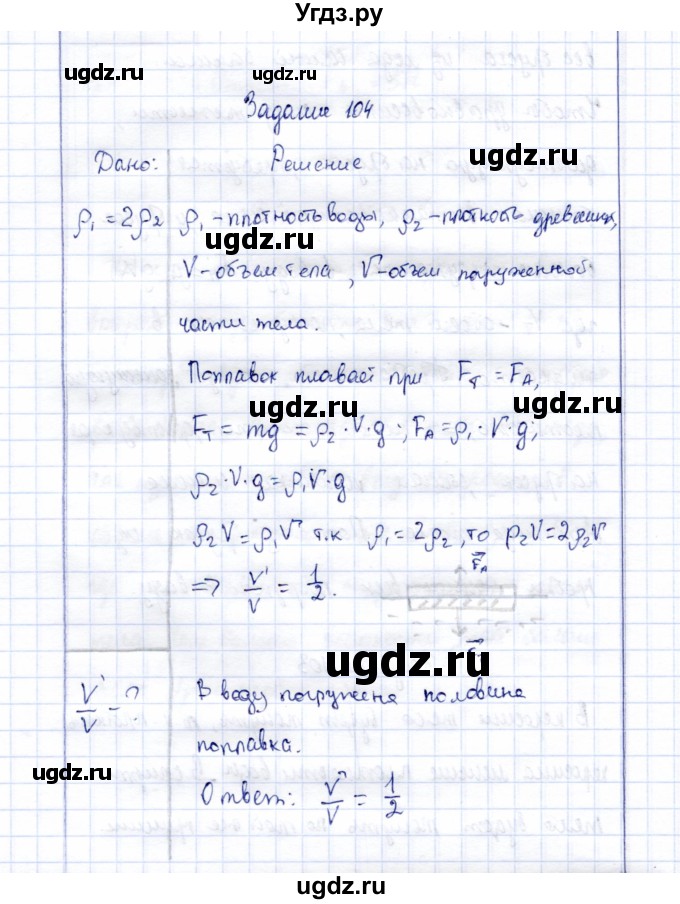 Угдз.ру
ugdz.ru ugdz.ru
Задание 104
Дано: Решение
ugdz.ru
ρ₁ = 2ρ₂ ρ₁ - плотность воды, ρ₂ - плотность древесины,
ugdz.ru
V - объем тела, V' - объем погруженной
части тела.
ugdz.ru
Поплавок плавает при Fт = FA,
Fт = mg = ρ₂·V·g; FA = ρ₁·V'·g;
ρ₂·V·g = ρ₁V'·g
ρ₂V = ρ₁V' т.к ρ₁ = 2ρ₂, то ρ₂V = 2ρ₂V'
FA
=> V'/V = 1/2.
ugdz.ru
V'/V - ? В воду погружена половина
поплавка.
ugdz.ru
Ответ: V'/V = 1/2
ugdz.ru
ugdz.ru